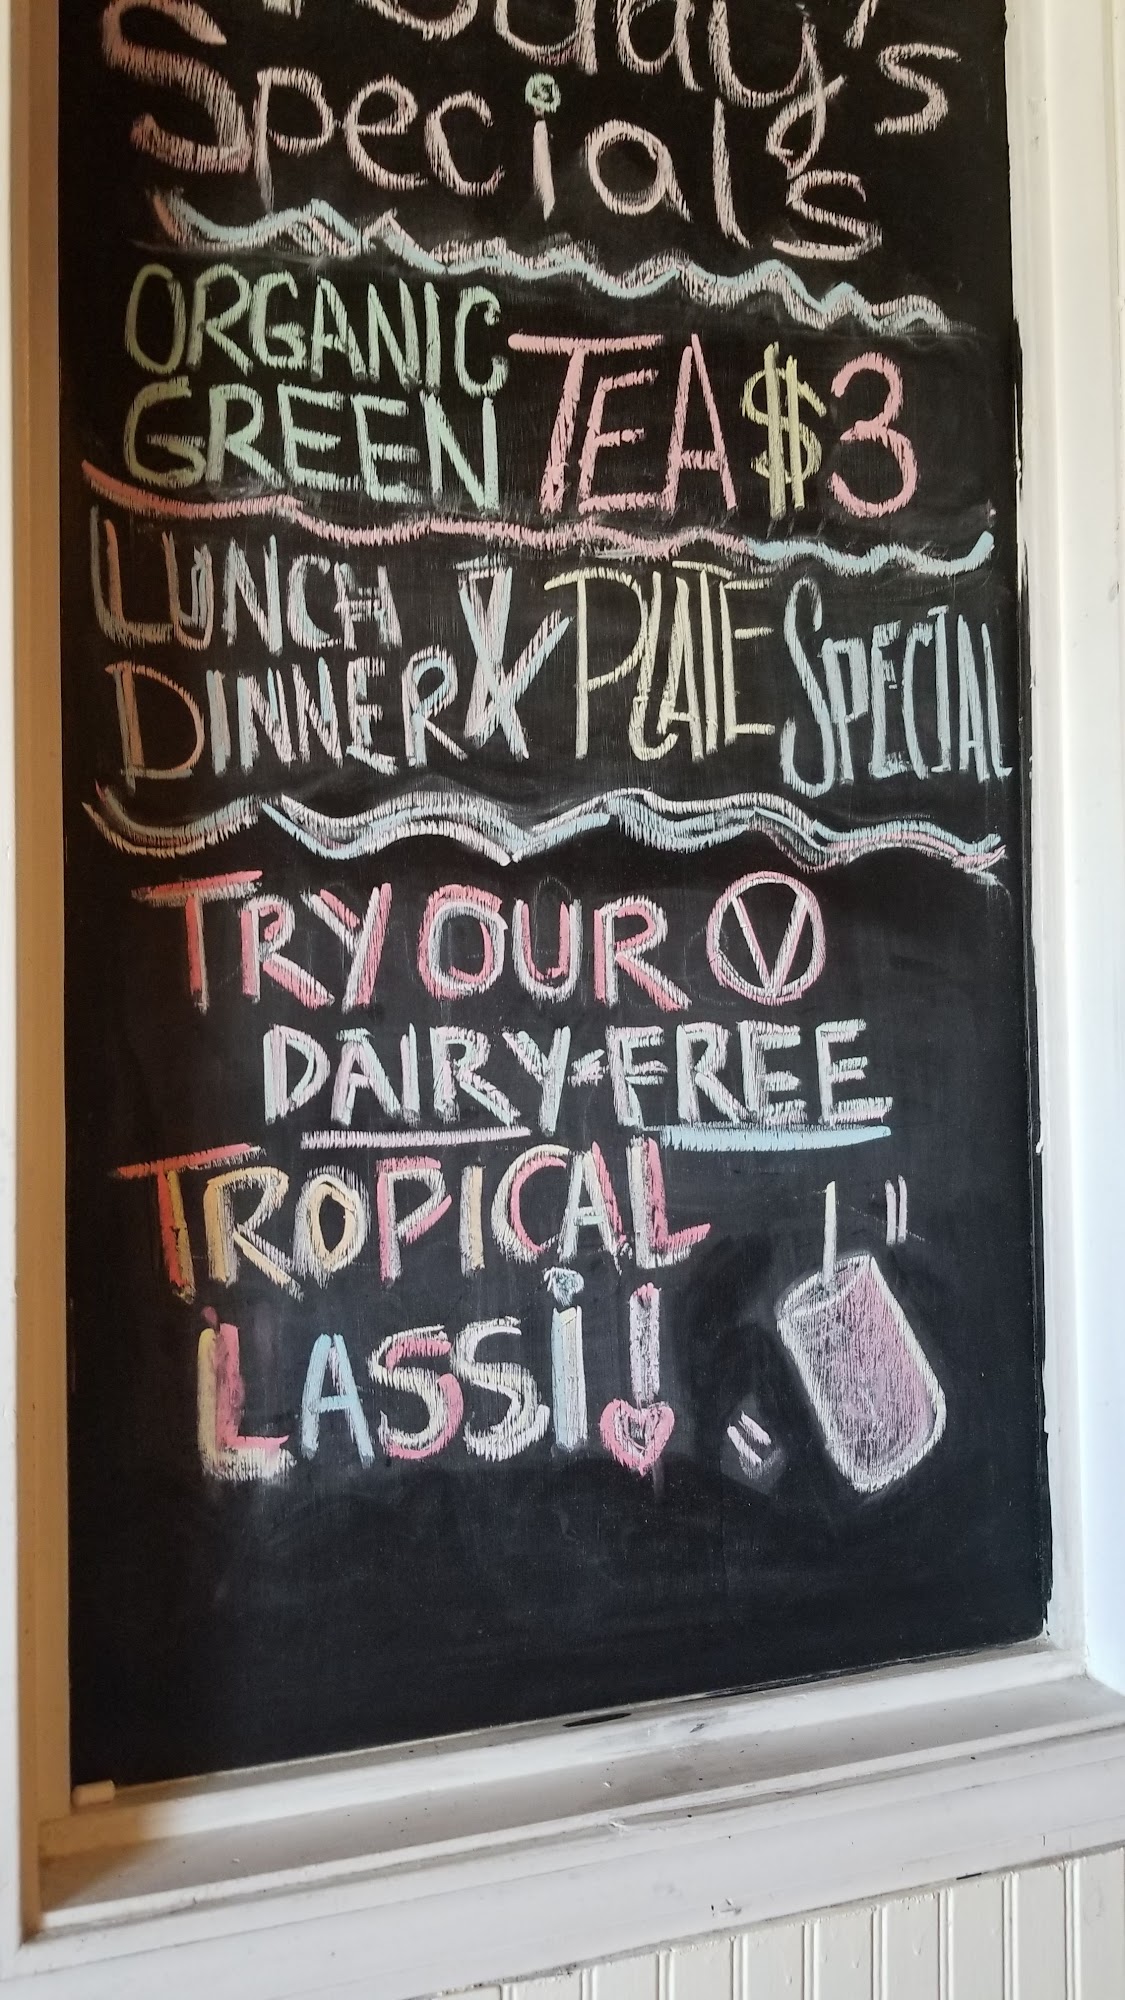 Today's
Specials
ORGANIC
GREEN TEA $3
LUNCH
DINNER & PLATE SPECIAL
TRY OUR V
DAIRY-FREE
TROPICAL
LASSi!